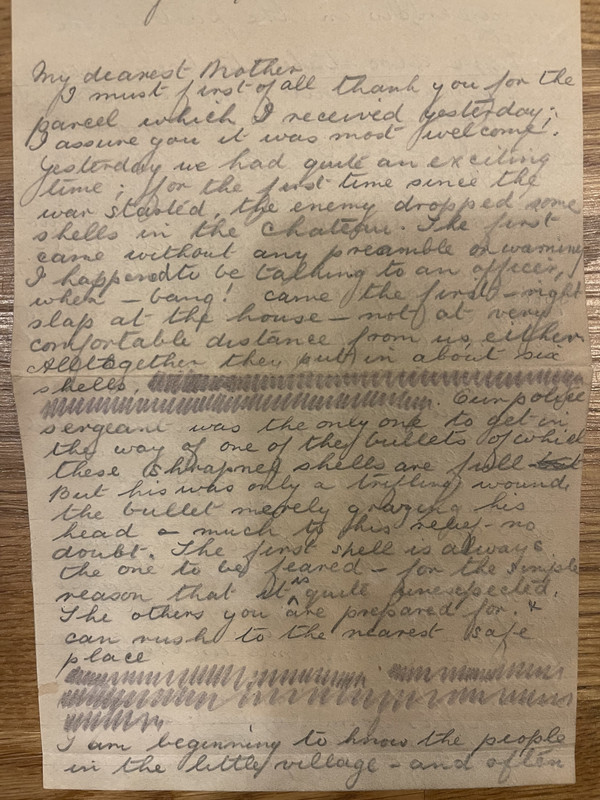 My dearest Mother
I must first of all thank you for the
parcel which I received yesterday;
I assure you it was most welcome.
Yesterday we had quite an exciting
time; for the first time since the
war started, the enemy dropped some
shells in the chateau. The first
came without any preamble or warning
I happened to be talking to an officer,
when – bang! came the first – right
slap at the house – not at very
comfortable distance from us, either.
Alltogether they put in about six
shells.
Our police
sergeant was the only one to get in
the way of one of the bullets of which
these shrapnel shells are full
But his was only a trifling wound,
the bullet merely grazing his
head – much to his relief no
doubt. The first shell is always
the one to be feared – for the simple
reason that it is quite unexpected.
The others you are prepared for. &
can rush to the nearest safe
place
I am beginning to know the people
in the little village – and often